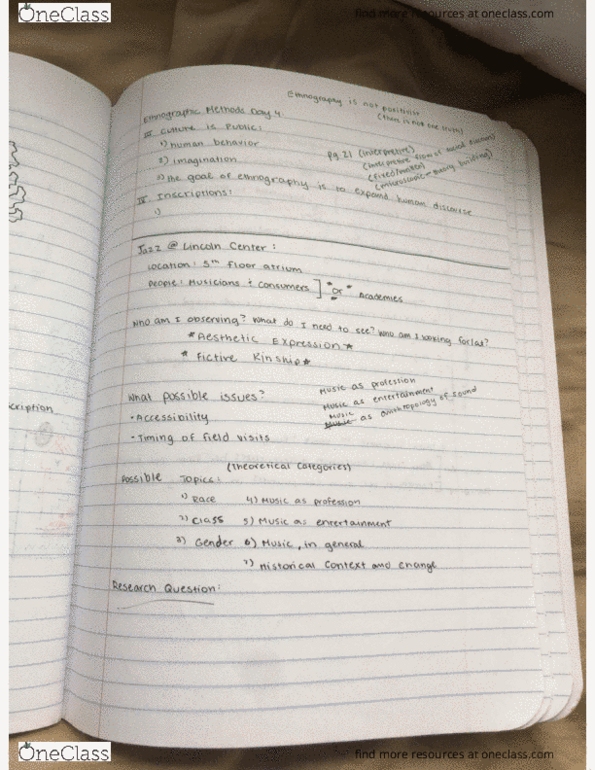 OneClass
find more resources at oneclass.com
Ethnography is not positivist
(there is not one truth)
Ethnographic Methods Day 4
III. Culture is Public:
1) human behavior
2) imagination
3) the goal of ethnography is to expand human discourse
pg. 21 (interpretive)
(interpretive flow of social discourse)
(fixed/
(microscopic - theory building)
IV. Inscriptions:
1)
Jazz @ Lincoln Center:
Location: 5th floor atrium
People: Musicians + consumers ] * or * Academics
Who am I observing? What do I need to see? Who am I looking for/at?
* Aesthetic Expression *
* Fictive Kinship *
What possible issues?
• Accessibility
• Timing of field visits
Music as profession
Music as entertainment
Music
Music as anthropology of sound
(Theoretical Categories)
Possible Topics:
1) Race 4) Music as profession
2) Class 5) Music as entertainment
3) Gender 6) Music, in general
7) Historical Context and change
Research Question:
cription
OneClass
find more resources at oneclass.com